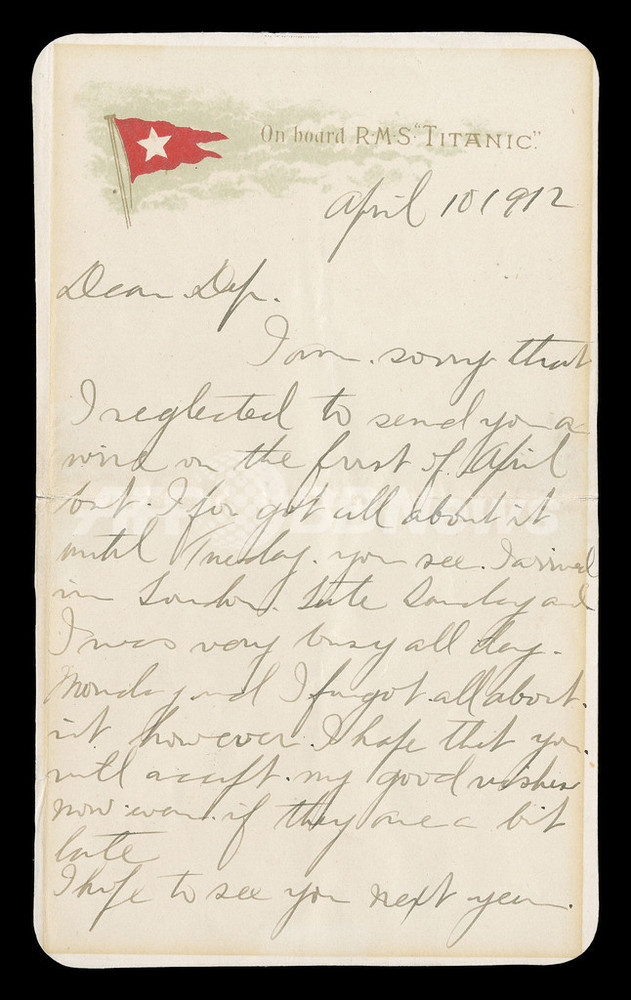 On board R·M·S "TITANIC".
April 10 1912
Dear
I am. sorry that
I neglected to send you a
wire on the first of April
but. I for got all about it
until Tuesday. you see. I arrived
in London. late Sunday and
I was very busy all day.
Monday and I forgot. all about.
it however. I hope that you.
will accept. my good wishes
now even. if they are a bit
late
I hope to see you next year.